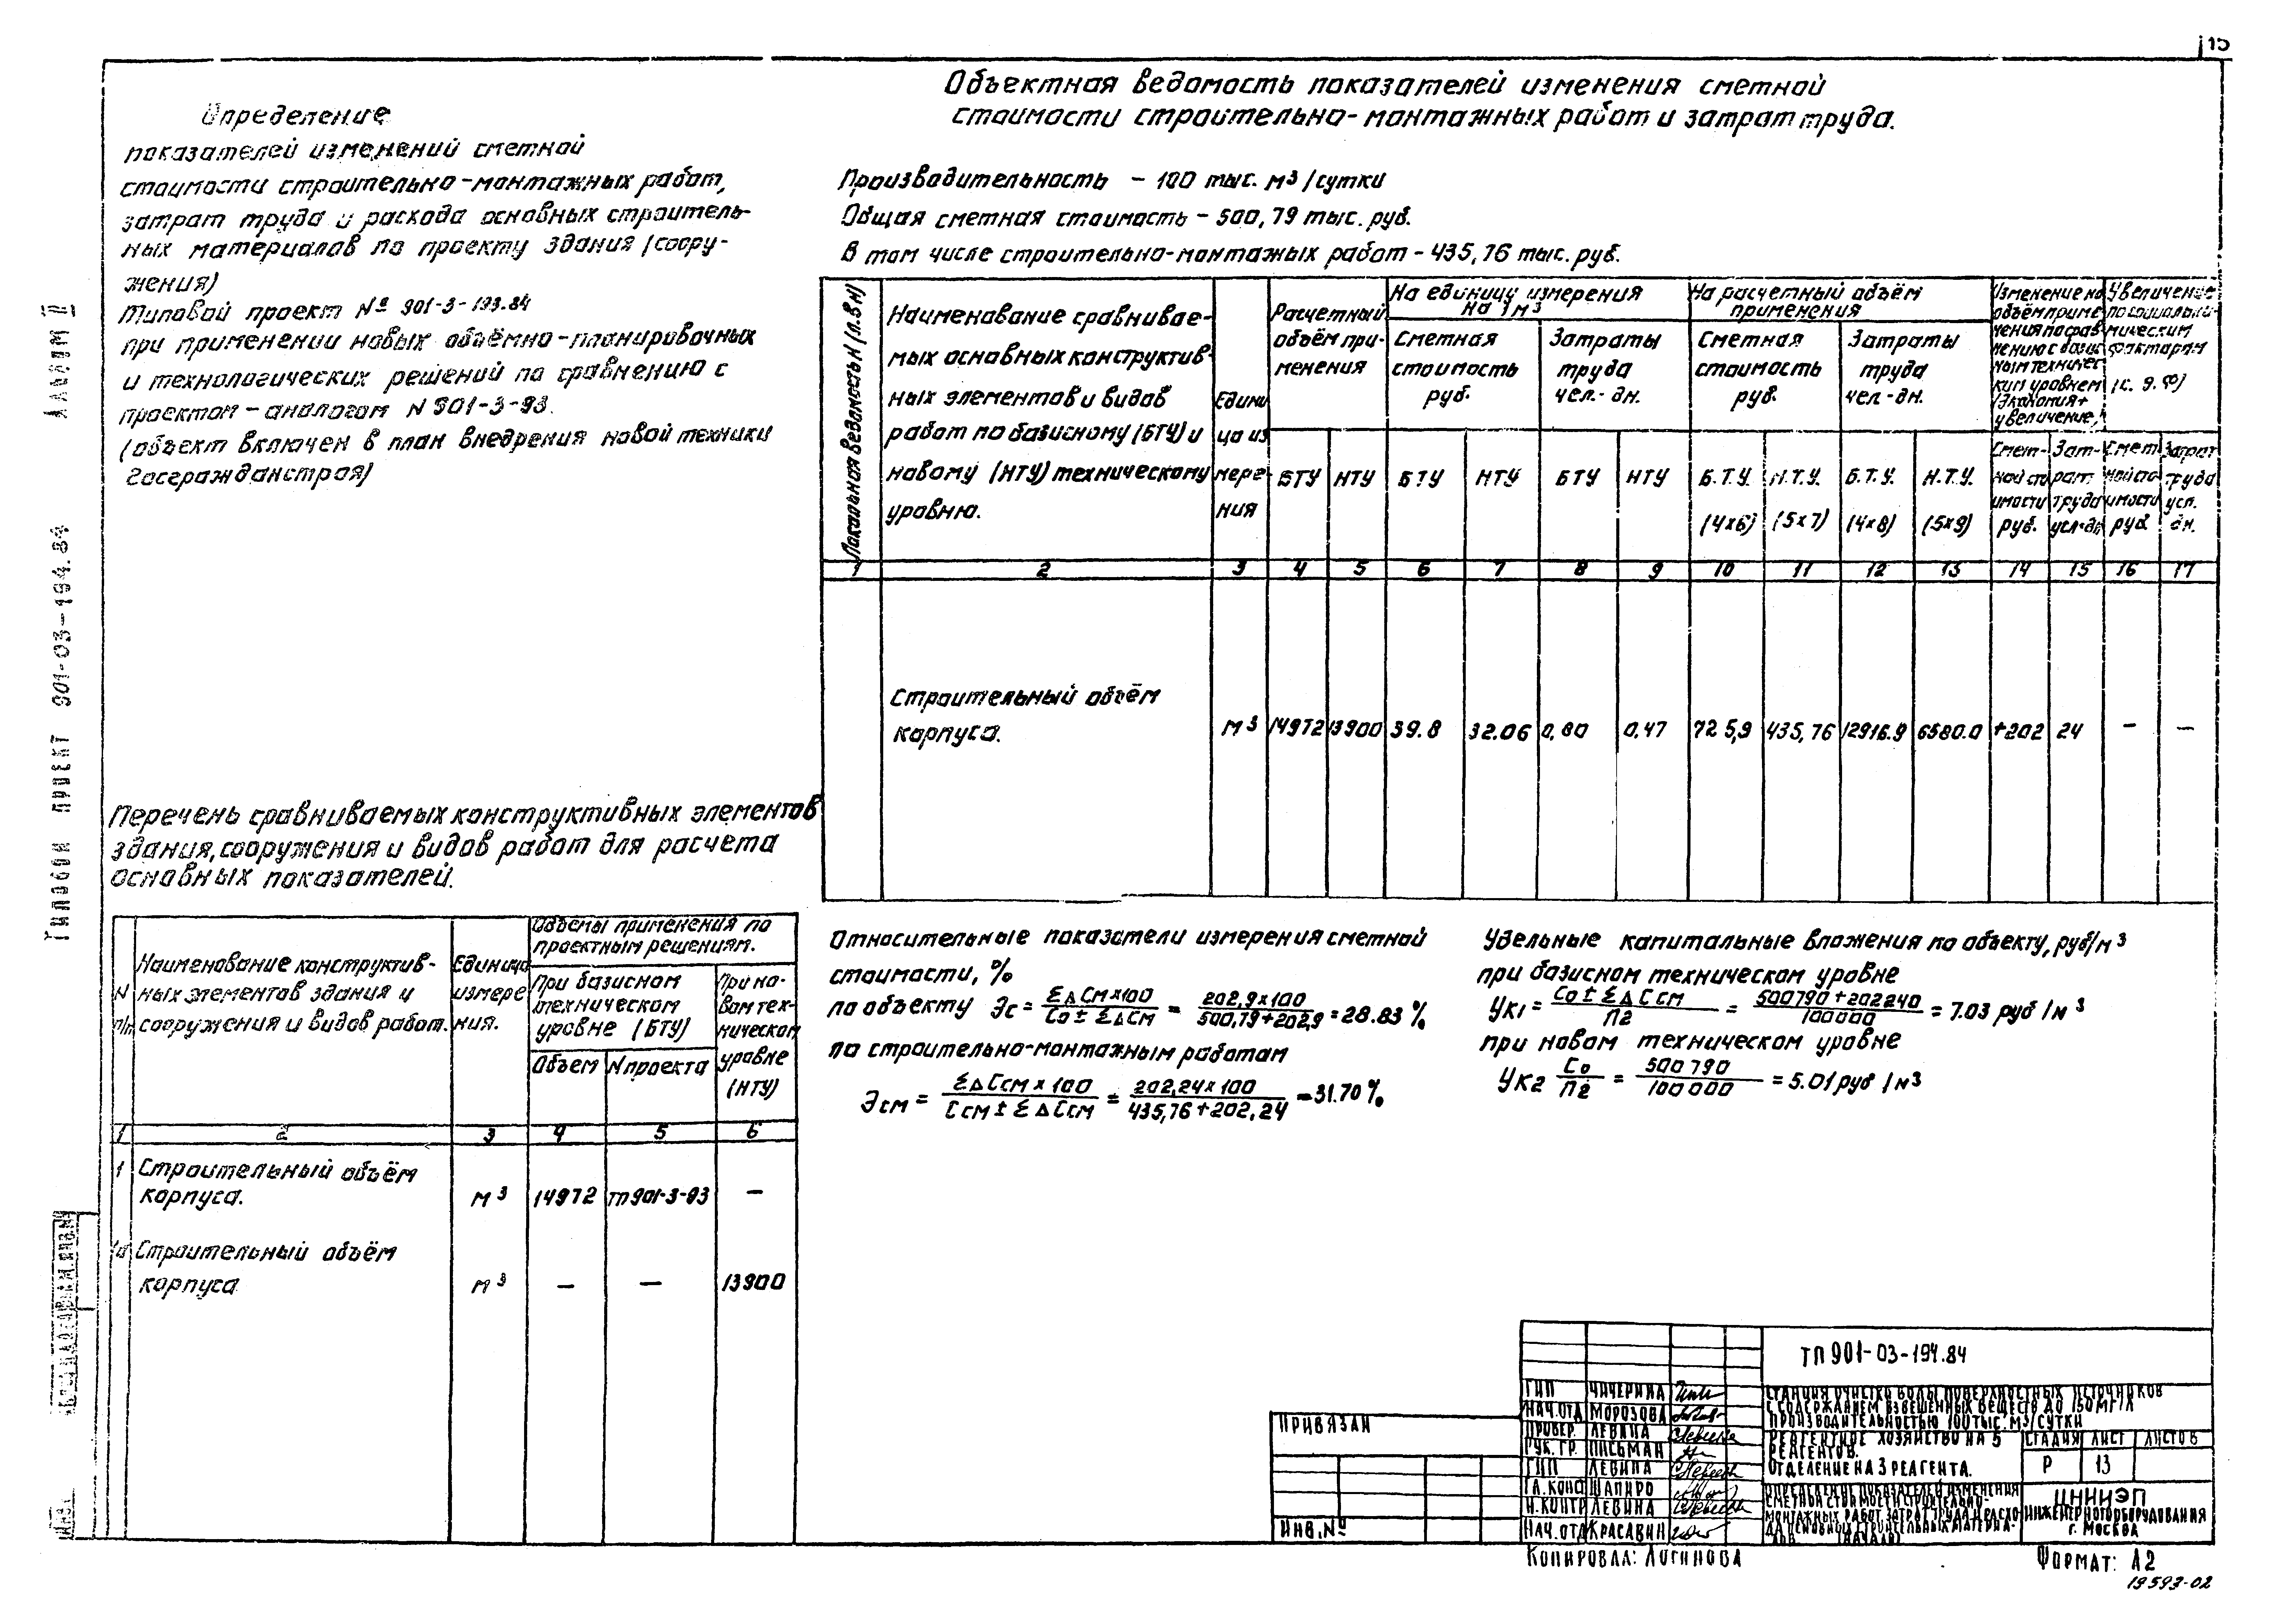 15
Определение
показателей изменений сметной
стоимости строительно-монтажных работ,
затрат труда и расхода основных строитель-
ных материалов по проекту здания (соору-
жения)
Типовой проект № 901-3-193.84
при применении новых объёмно-планировочных
и технологических решений по сравнению с
проектом-аналогом N 901-3-93.
(объект включен в план внедрения новой техники
Госгражданстроя)
Перечень сравниваемых конструктивных элементов
здания, сооружения и видов работ для расчета
основных показателей.
N п/п
Наименование конструктив-
ных элементов здания и
сооружения и видов работ.
Единица
измере
ния.
Объемы применения по
проектным решениям.
При базисном
техническом
уровне (БТУ)
При но-
вом тех-
ническом
уровне
(НТУ)
Объем N проекта
1 2 3 4 5 6
1 Строительный объём
корпуса. м³ 14972 тп901-3-93 —
1а Строительный объём
корпуса м³ — — 13900
Объектная ведомость показателей изменения сметной
стоимости строительно-монтажных работ и затрат труда.
Производительность - 100 тыс. м³/сутки
Общая сметная стоимость - 500,79 тыс. руб.
в том числе строительно-монтажных работ - 435,76 тыс. руб.
Локальная ведомость N (п.в.н)
Наименование сравнивае-
мых основных конструктив-
ных элементов и видов
работ по базисному (БТУ) и
новому (НТУ) техническому
уровню.
Едини
ца из
мере-
ния
Расчетный
объём при-
менения
На единицу измерения
на 1м³
На расчетный объём
применения
Сметная
стоимость
руб.
Затраты
труда
чел.-дн.
Сметная
стоимость
руб.
Затраты
труда
чел-дн.
Изменение на
объём приме
нения по срав
нению с базис
ным техничес
ким уровнем
(экономия+
увеличение,
Увеличение
по социальны
мическим
факторам
(с. 9. Ф)
БТУ НТУ БТУ НТУ БТУ НТУ Б.Т.У. Н.Т.У. Б.Т.У. Н.Т.У.
(4х6) (5х7) (4х8) (5х9)
Смет-
ной сто
имости
руб.
Зат-
рат.
труда
Смет
ной сто
имости
руб
Затрат
труда
усл.
дн.
1 2 3 4 5 6 7 8 9 10 11 12 13 14 15 16 17
Строительный объём
корпуса. м³ 14972 13900 39.8 32.06 0,80 0.47 725,9 435,76 12916.9 6580.0 +202 24 — —
Относительные показатели измерения сметной
стоимости, %
по объекту Эс = ΣΔCм×100 / Co ± ΣΔCм = 202,9×100 / 500,79+202,9 = 28.83 %
по строительно-монтажным работам
Эсм = ΣΔCсм × 100 / Cсм ± ΣΔCсм = 202,24×100 / 435,76+202,24 = 31.70 %
Удельные капитальные вложения по объекту, руб/м³
при базисном техническом уровне
Ук1 = Co ± ΣΔCсм / П2 = 500790+202240 / 100000 = 7.03 руб/м³
при новом техническом уровне
Ук2 Co / П2 = 500790 / 100000 = 5.01 руб/м³
Альбом II
Типовой проект 901-03-194.84
Привязан
Инв. №
ТП 901-03-194.84
ГИП Чичерина
Нач.отд Морозова
Провер. Левина
Рук. гр. Письман
ГИП Левина
Гл.конс Шапиро
Н.контр Левина
Нач.отд Красавин
Станция очистки воды поверхностных источников
с содержанием взвешенных веществ до 150 мг/л
производительностью 100 тыс. м3/сутки
Реагентное хозяйство на 5
реагентов.
Отделение на 3 реагента.
Стадия Лист Листов
Р 13
Определение показателей изменения
сметной стоимости строительно-
монтажных работ, затрат труда и расхо-
да основных строительных материа-
лов (начало)
ЦНИИЭП
инженерного оборудования
г. Москва
Копировла: Логинова
Формат: А2
19593-02